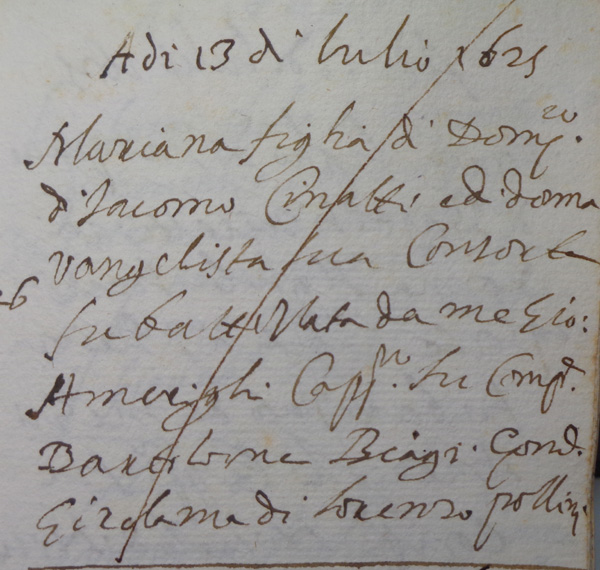 Adi 13 di lulio 1625
Mariana figlia di Dom:co
di Iacomo Cinatti e di doma
vangelista sua Consorte
fu battezzata da me Gio:
Amerighi Capp:no fu Comp:e
Bartolome Biagi. Com:e
Girolama di Lorenzo pollini